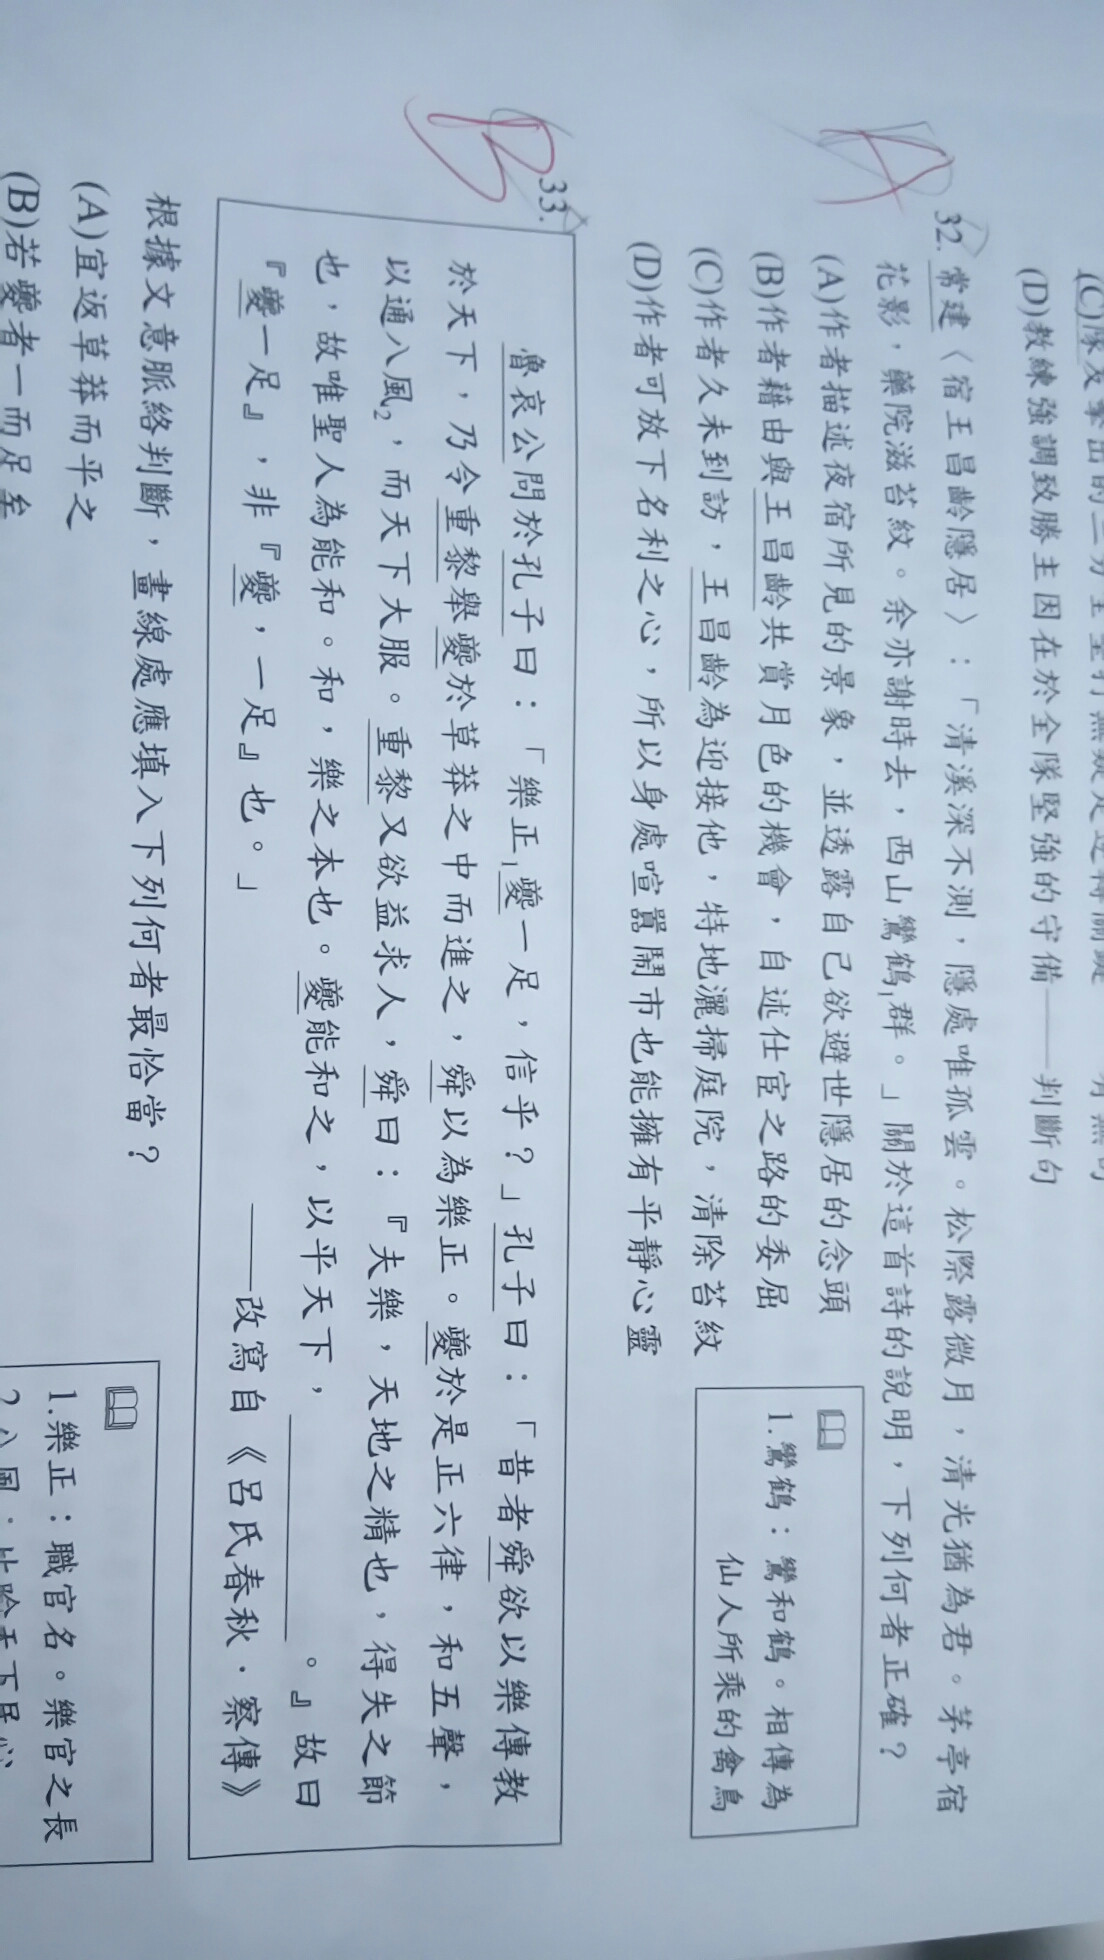 (D)教練強調致勝主因在於全隊堅強的守備——判斷句
32. 常建〈宿王昌齡隱居〉：「清溪深不測，隱處唯孤雲。松際露微月，清光猶為君。茅亭宿
花影，藥院滋苔紋。余亦謝時去，西山鸞鶴1群。」關於這首詩的說明，下列何者正確？
(A)作者描述夜宿所見的景象，並透露自己欲避世隱居的念頭
(B)作者藉由與王昌齡共賞月色的機會，自述仕宦之路的委屈
(C)作者久未到訪，王昌齡為迎接他，特地灑掃庭院，清除苔紋
(D)作者可放下名利之心，所以身處喧囂鬧市也能擁有平靜心靈
1.鸞鶴：鸞和鶴。相傳為
仙人所乘的禽鳥
A
33.
B
魯哀公問於孔子曰：「樂正1夔一足，信乎？」孔子曰：「昔者舜欲以樂傳教
於天下，乃令重黎舉夔於草莽之中而進之，舜以為樂正。夔於是正六律，和五聲，
以通八風2，而天下大服。重黎又欲益求人，舜曰：『夫樂，天地之精也，得失之節
也，故唯聖人為能和。和，樂之本也。夔能和之，以平天下，______。』故曰
『夔一足』，非『夔，一足』也。」
——改寫自《呂氏春秋．察傳》
根據文意脈絡判斷，畫線處應填入下列何者最恰當？
(A)宜返草莽而平之
(B)若夔者一而足矣
1.樂正：職官名。樂官之長